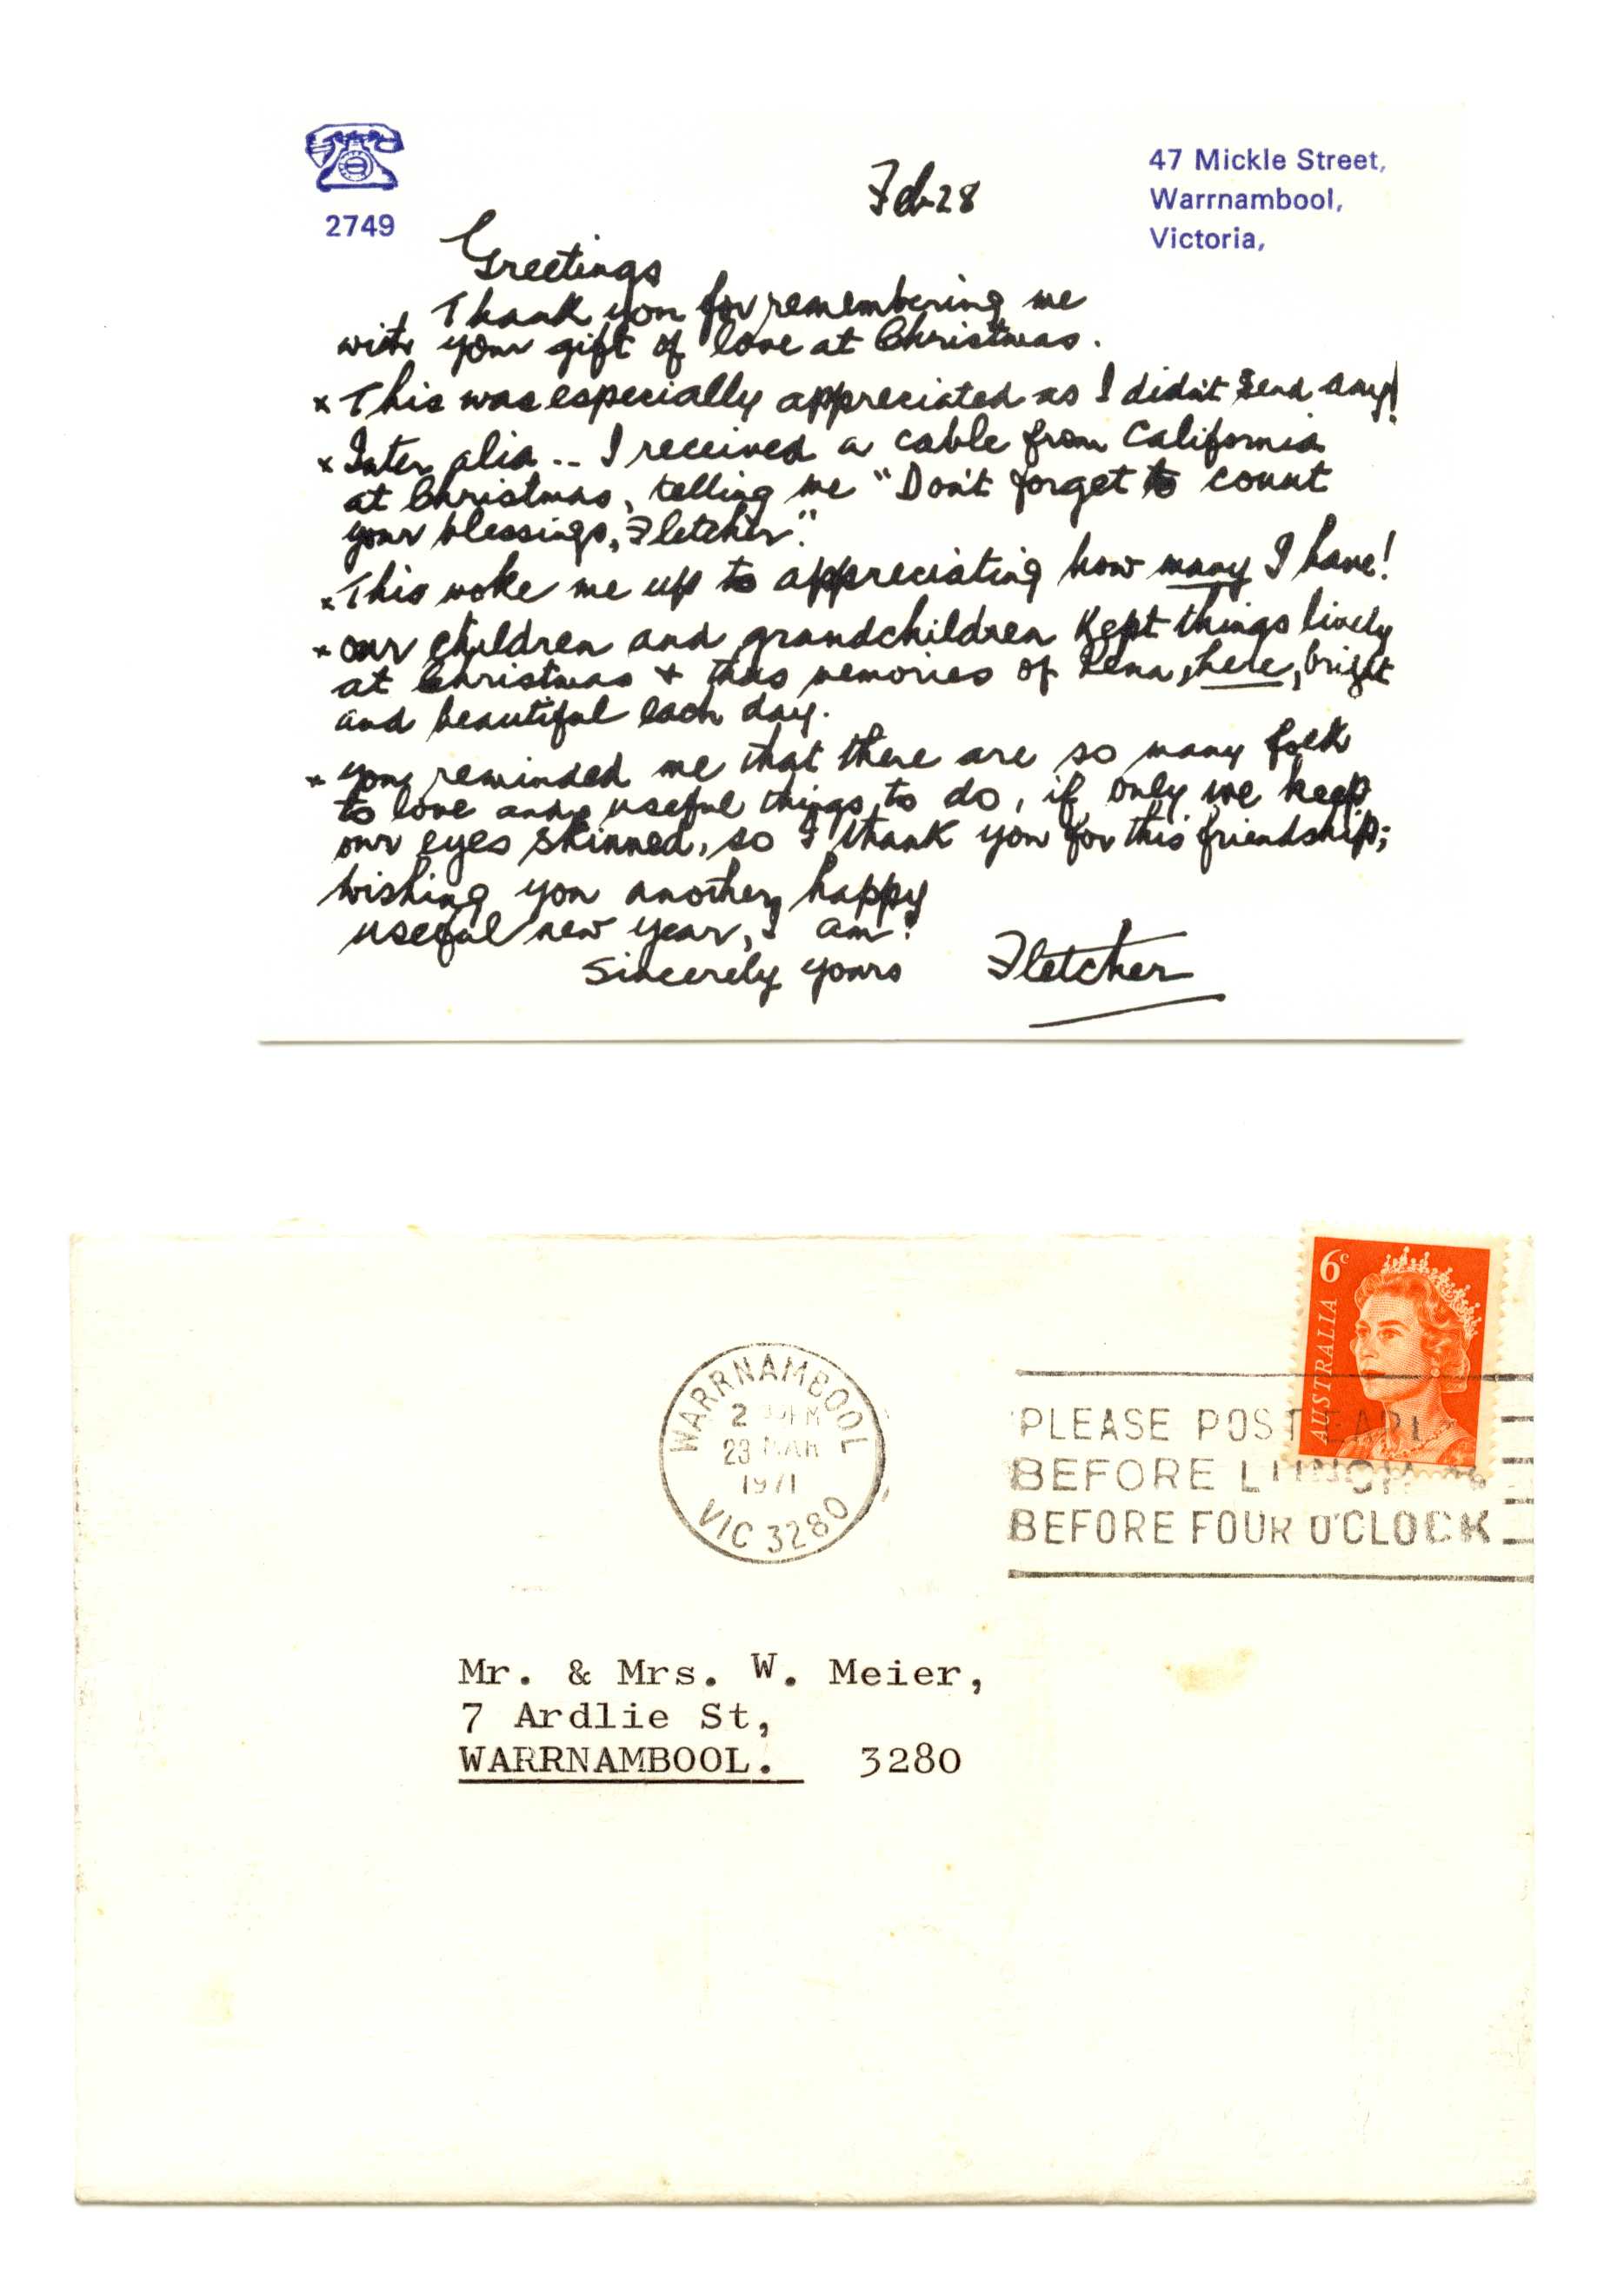 2749
Feb 28
47 Mickle Street,
Warrnambool,
Victoria,
Greetings
Thank you for remembering me
with your gift of love at Christmas.
x This was especially appreciated as I didn't send any!
x Inter alia .. I received a cable from California
at Christmas, telling me "Don't forget to count
your blessings, Fletcher."
x This woke me up to appreciating how many I have!
x our children and grandchildren kept things lively
at Christmas + thus memories of Rena, here, bright
and beautiful each day.
x you reminded me that there are so many folk
to love and useful things to do, if only we keep
our eyes skinned, so I thank you for this friendship;
wishing you another happy
useful new year, I am!
Sincerely yours Fletcher
6c
AUSTRALIA
WARRNAMBOOL
2 PM
23 MAR
1971
VIC 3280
PLEASE POST
BEFORE LUNCH
BEFORE FOUR O'CLOCK
Mr. & Mrs. W. Meier,
7 Ardlie St,
WARRNAMBOOL. 3280